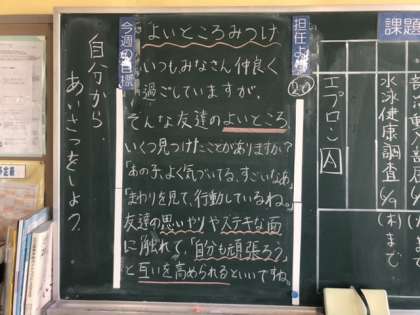 課題
水泳健康調査 6/9(木)まで
エプロン A
担任より
20
よいところみつけ
いつも、みなさん仲良く
過ごしていますが、
そんな友達のよいところ、
いくつ見つけたことがありますか?
「あの子、よく気づいてる、すごいなあ」
「まわりを見て、行動しているね。」
友達の思いやりやステキな面
に触れて、「自分も頑張ろう」
と互いを高められるといいですね。
今週の目標
自分から
あいさつをしよう。